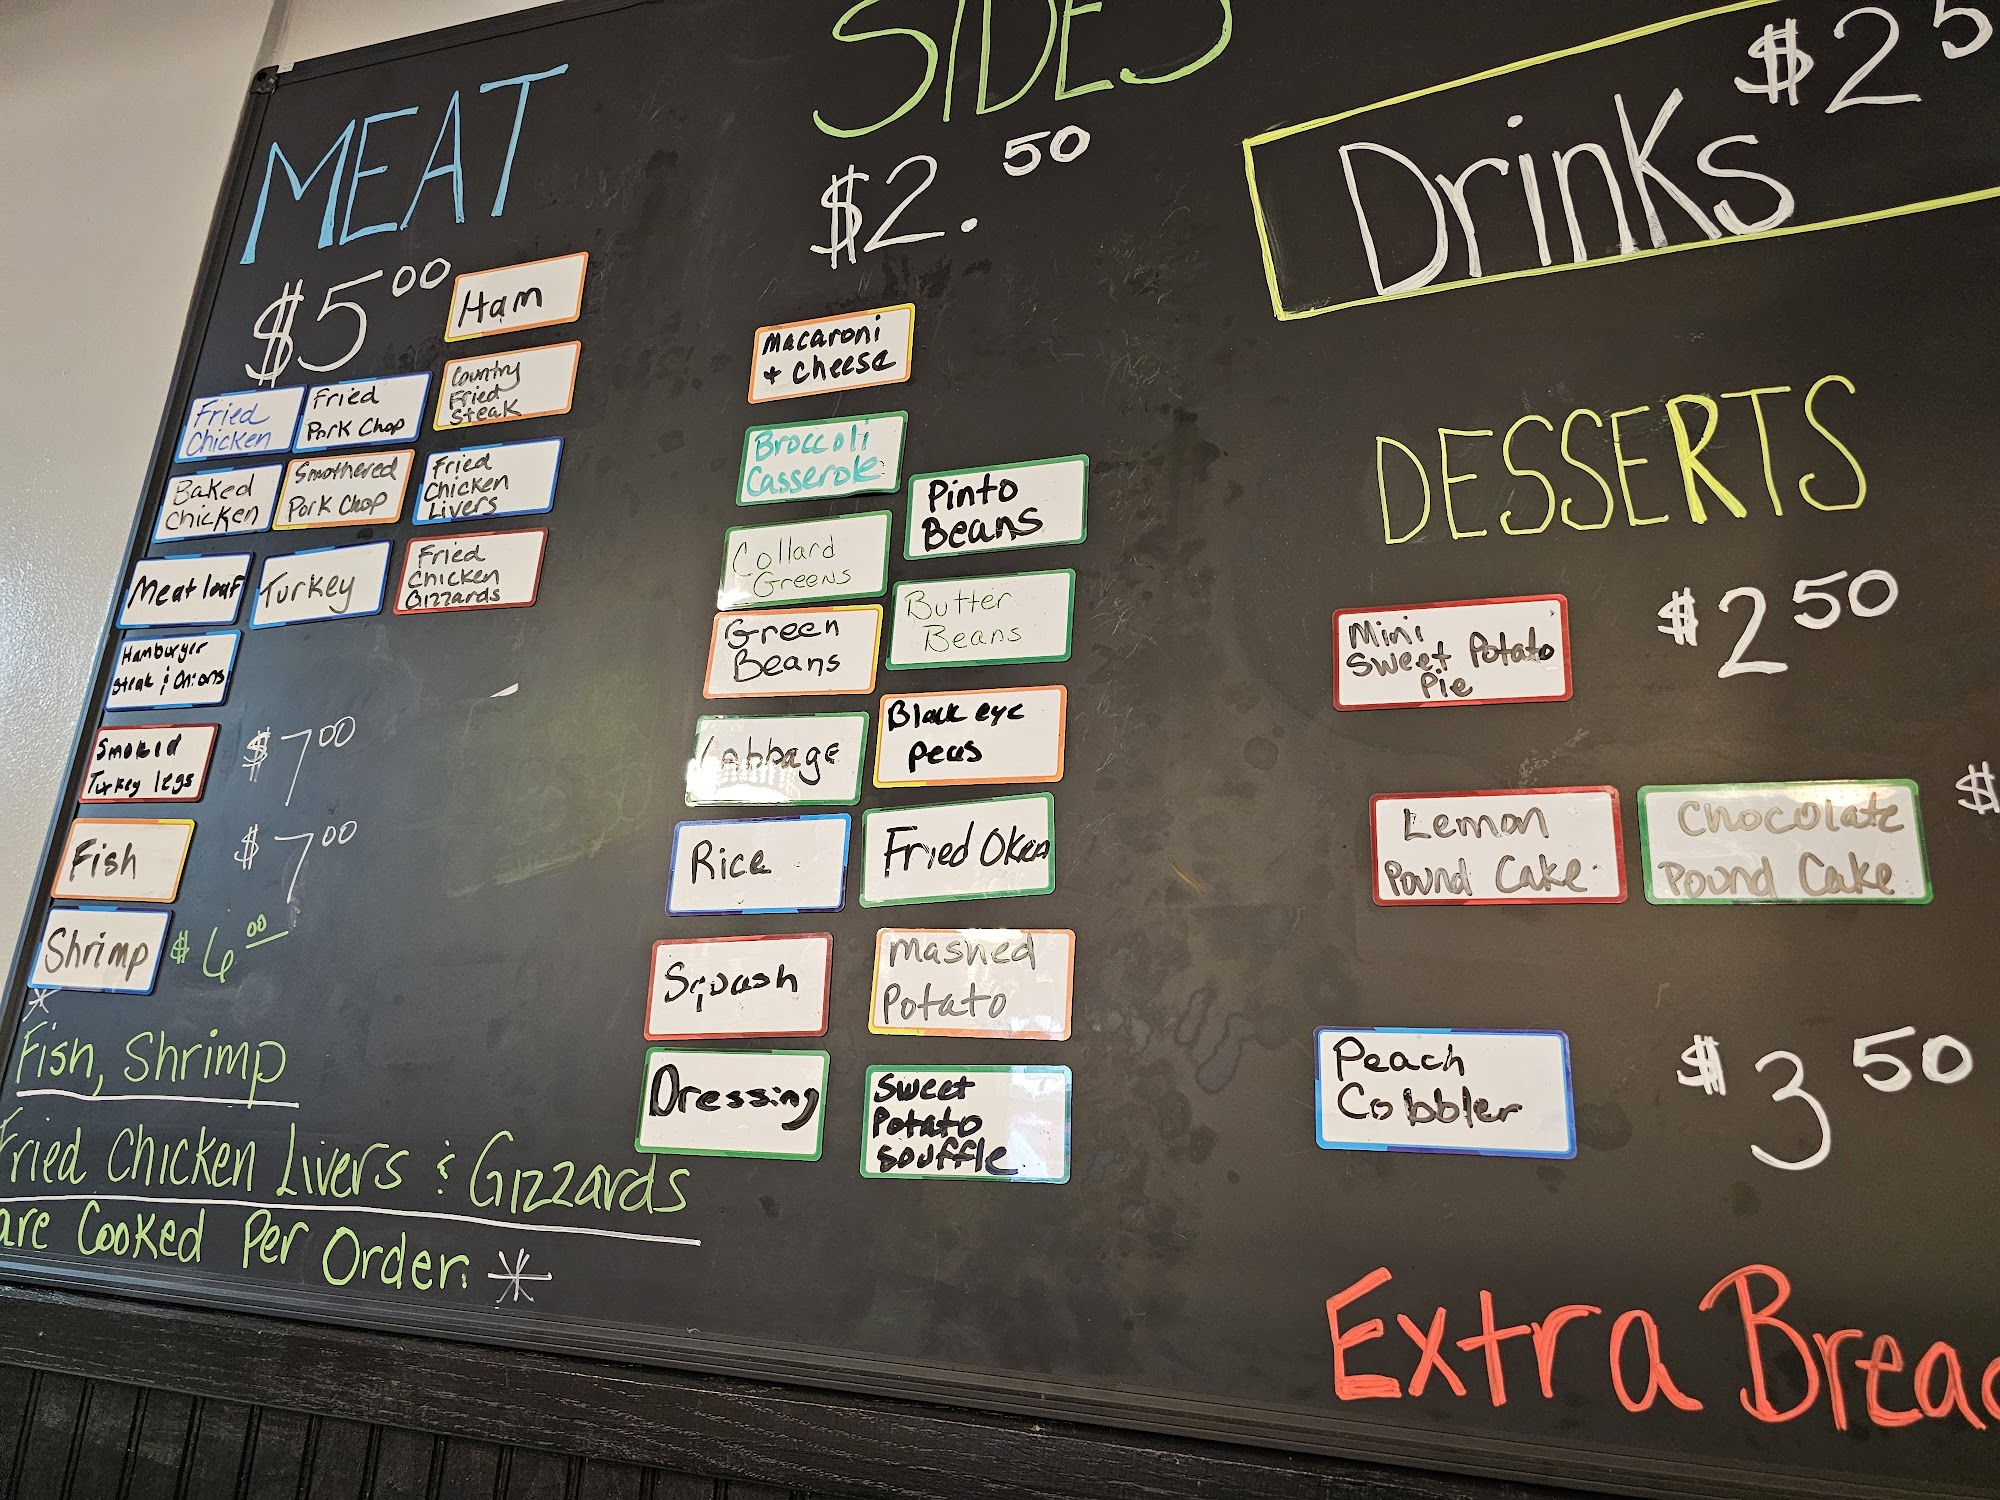 MEAT
$5.00
Ham
Fried
Chicken
Fried
Pork Chop
Country
Fried
Steak
Baked
Chicken
Smothered
Pork Chop
Fried
Chicken
Livers
Meat loaf
Turkey
Fried
Chicken
Gizzards
Hamburger
Steak & Onions
Smoked
Turkey legs
$7.00
Fish
$7.00
Shrimp
$6.00
*
Fish, Shrimp
Fried Chicken Livers & Gizzards
are Cooked Per Order. *
SIDES
$2.50
Macaroni
+ Cheese
Broccoli
Casserole
Pinto
Beans
Collard
Greens
Butter
Beans
Green
Beans
Black eye
peas
Cabbage
Rice
Fried Okra
Squash
Mashed
Potato
Dressing
Sweet
Potato
Souffle
Drinks $25
DESSERTS
Mini
Sweet Potato
Pie
$2.50
Lemon
Pound Cake
Chocolate
Pound Cake
$
Peach
Cobbler
$3.50
Extra Brea